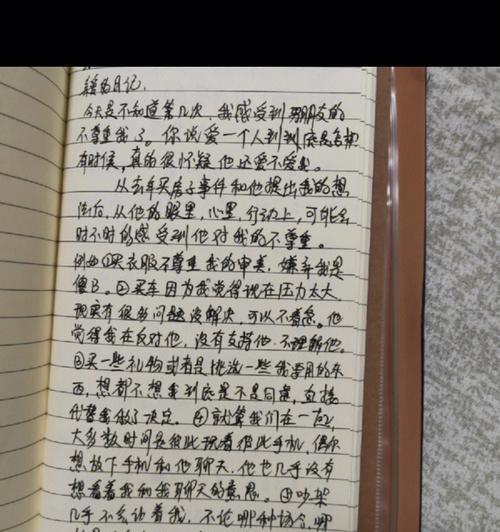 亲爱的日记：
今天是不知道第几次，我感受到男朋友的
不尊重我了。你说爱一个人到到底是怎样
有时候，真的很怀疑他还爱不爱我。
从去年买房子事件和他提出我的想
法后，从他的眼里，心里，行动上，可能会
时不时的感受到他对我的不尊重。
例如①买衣服不尊重我的审美，嫌弃我是
傻B。②买车因为我觉得现在压力太大
现实有很多问题没解决，可以不着急。他
觉得我在反对他，没有支持他，不理解他。
③买一些礼物或者是挑选一些我要用的东
西，想都不想我到底是不是同意，直接
代替我做了决定。④就算我们在一起，
大多数时间各自彼此玩着彼此手机，偶尔
想放下手机和他聊天，他也几乎没有
想看着我和我聊天的意思。⑤吵架
几乎不会让着我，不论哪种场合，哪